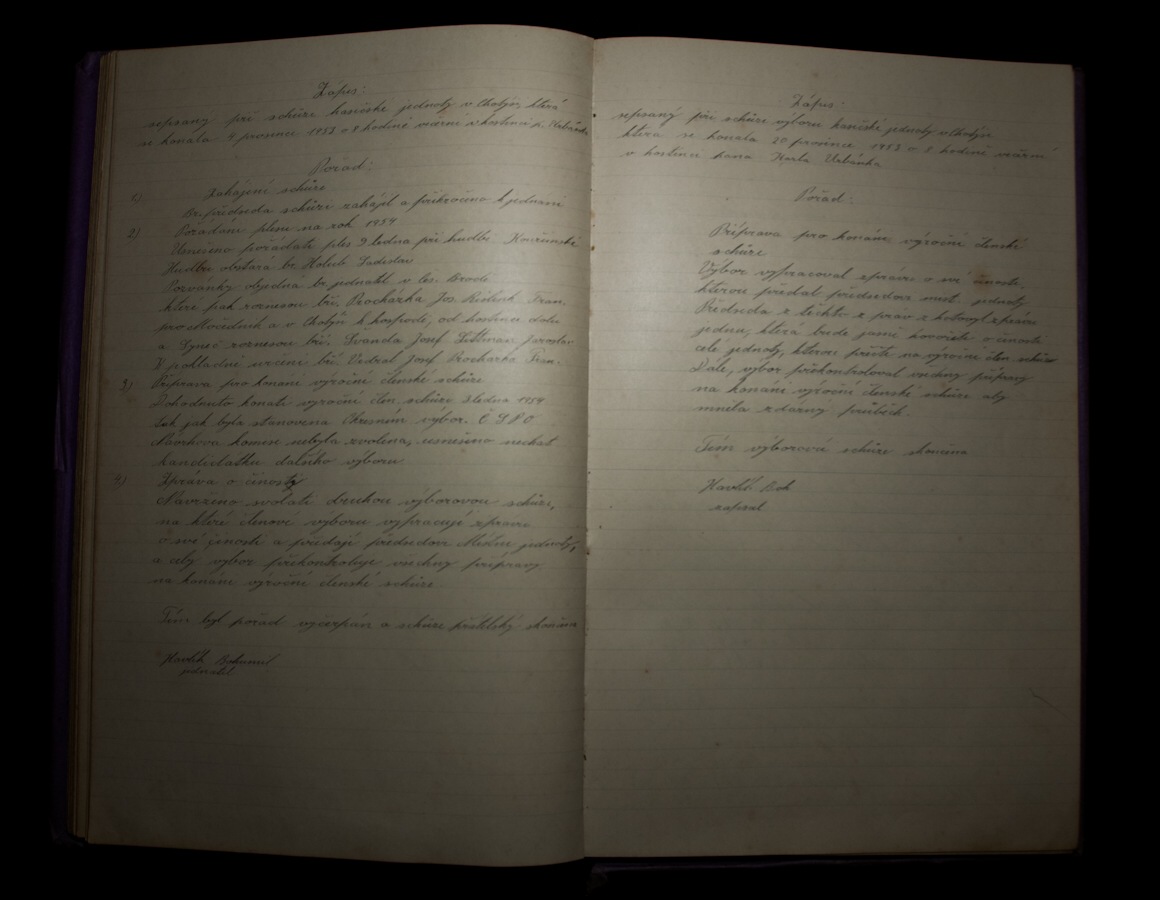 Zápis:
sepsaný při schůze hasičské jednoty v Chotýši, která
se konala 4 prosince 1953 o 8 hodině večerní v hostinci p. Urbánka
Pořad:
1) Zahájení schůze
Br. předseda schůzi zahájil a přikročeno k jednání
2) Pořádání plesu na rok 1954
Usneseno pořádati ples 9 ledna při hudbě
Hudbu obstará br. Holub Ladislav
Pozvánky objedná br. jednatel v Čes. Brodě
které pak roznesou bří. Procházka Jos. Fran.
pro a v Chotýši k hospodě, od hostince dolu
a roznesou bří. Švanda Josef Littman Jaroslav
K pokladně určeni bří Vedral Josef Procházka Fran.
3) Příprava pro konání výroční členské schůze
Dohodnuto konati výroční člen. schůze 3 ledna 1954
tak jak byla stanovena Okresním výbor. Č S P O
Návrhová komise nebyla zvolena, usneseno nechat
kandidátku dalšího výboru
4) Zpráva o činosti
Navrženo svolati druhou výborovou schůzi,
na které členové výboru vypracují zprávu
o své činosti a předají předsedovi Místní jednoty,
a celý výbor překontroluje všechny přípravy
na konání výroční členské schůze.
Tím byl pořad vyčerpán a schůze přátelsky skončena
Havlík Bohumil
jednatel
Zápis:
sepsaný při schůze výboru hasičské jednoty v Chotýši
která se konala 20 prosince 1953 o 8 hodině večerní
v hostinci pana Karla Urbánka
Pořad:
Příprava pro konání výroční členské
schůze
Výbor vypracoval zprávu o své činosti,
kterou předal předsedovi míst. jednoty
Předseda z těchto zprav z hotovyl zprávu
jednu, která bude jasně hovořiti o činosti
celé jednoty, kterou přečte na výroční člen. schůze
Dále, výbor překontroloval všechny přípravy
na konání výroční členské schůze aby
měla zdárný průběh.
Tím výborová schůze skončena
Havlík Boh
zapsal